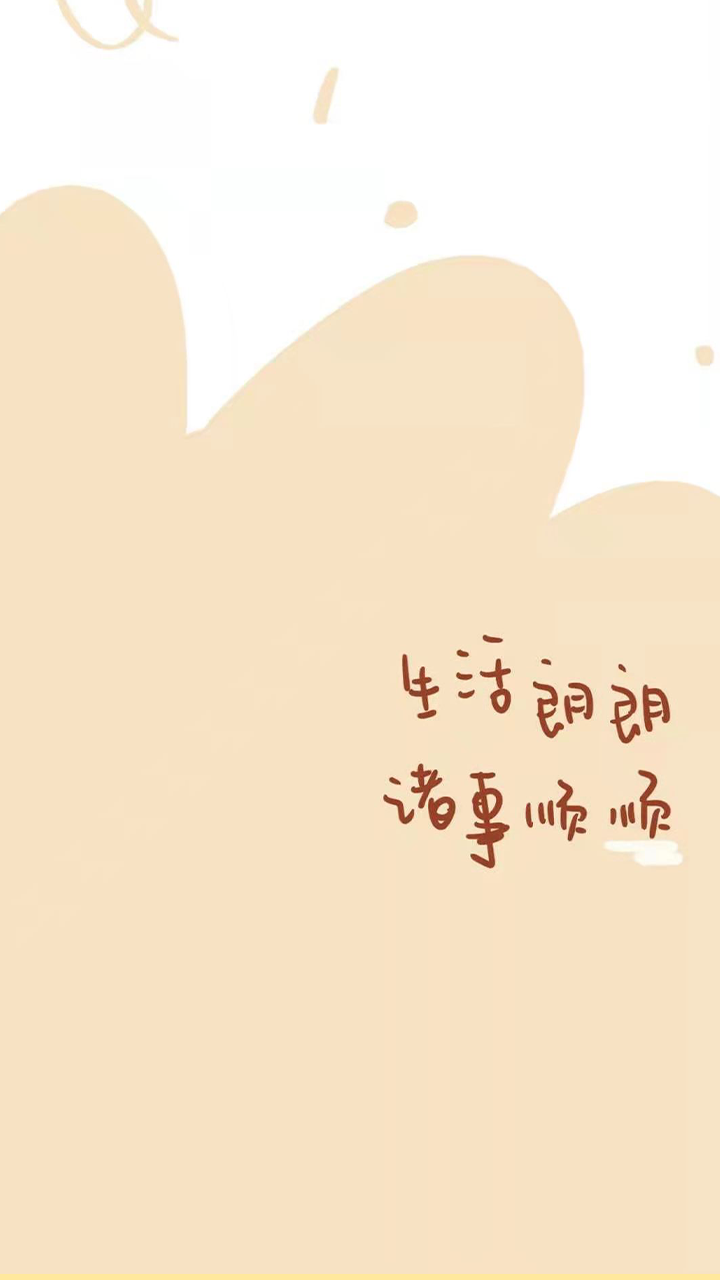 生活朗朗
诸事顺顺